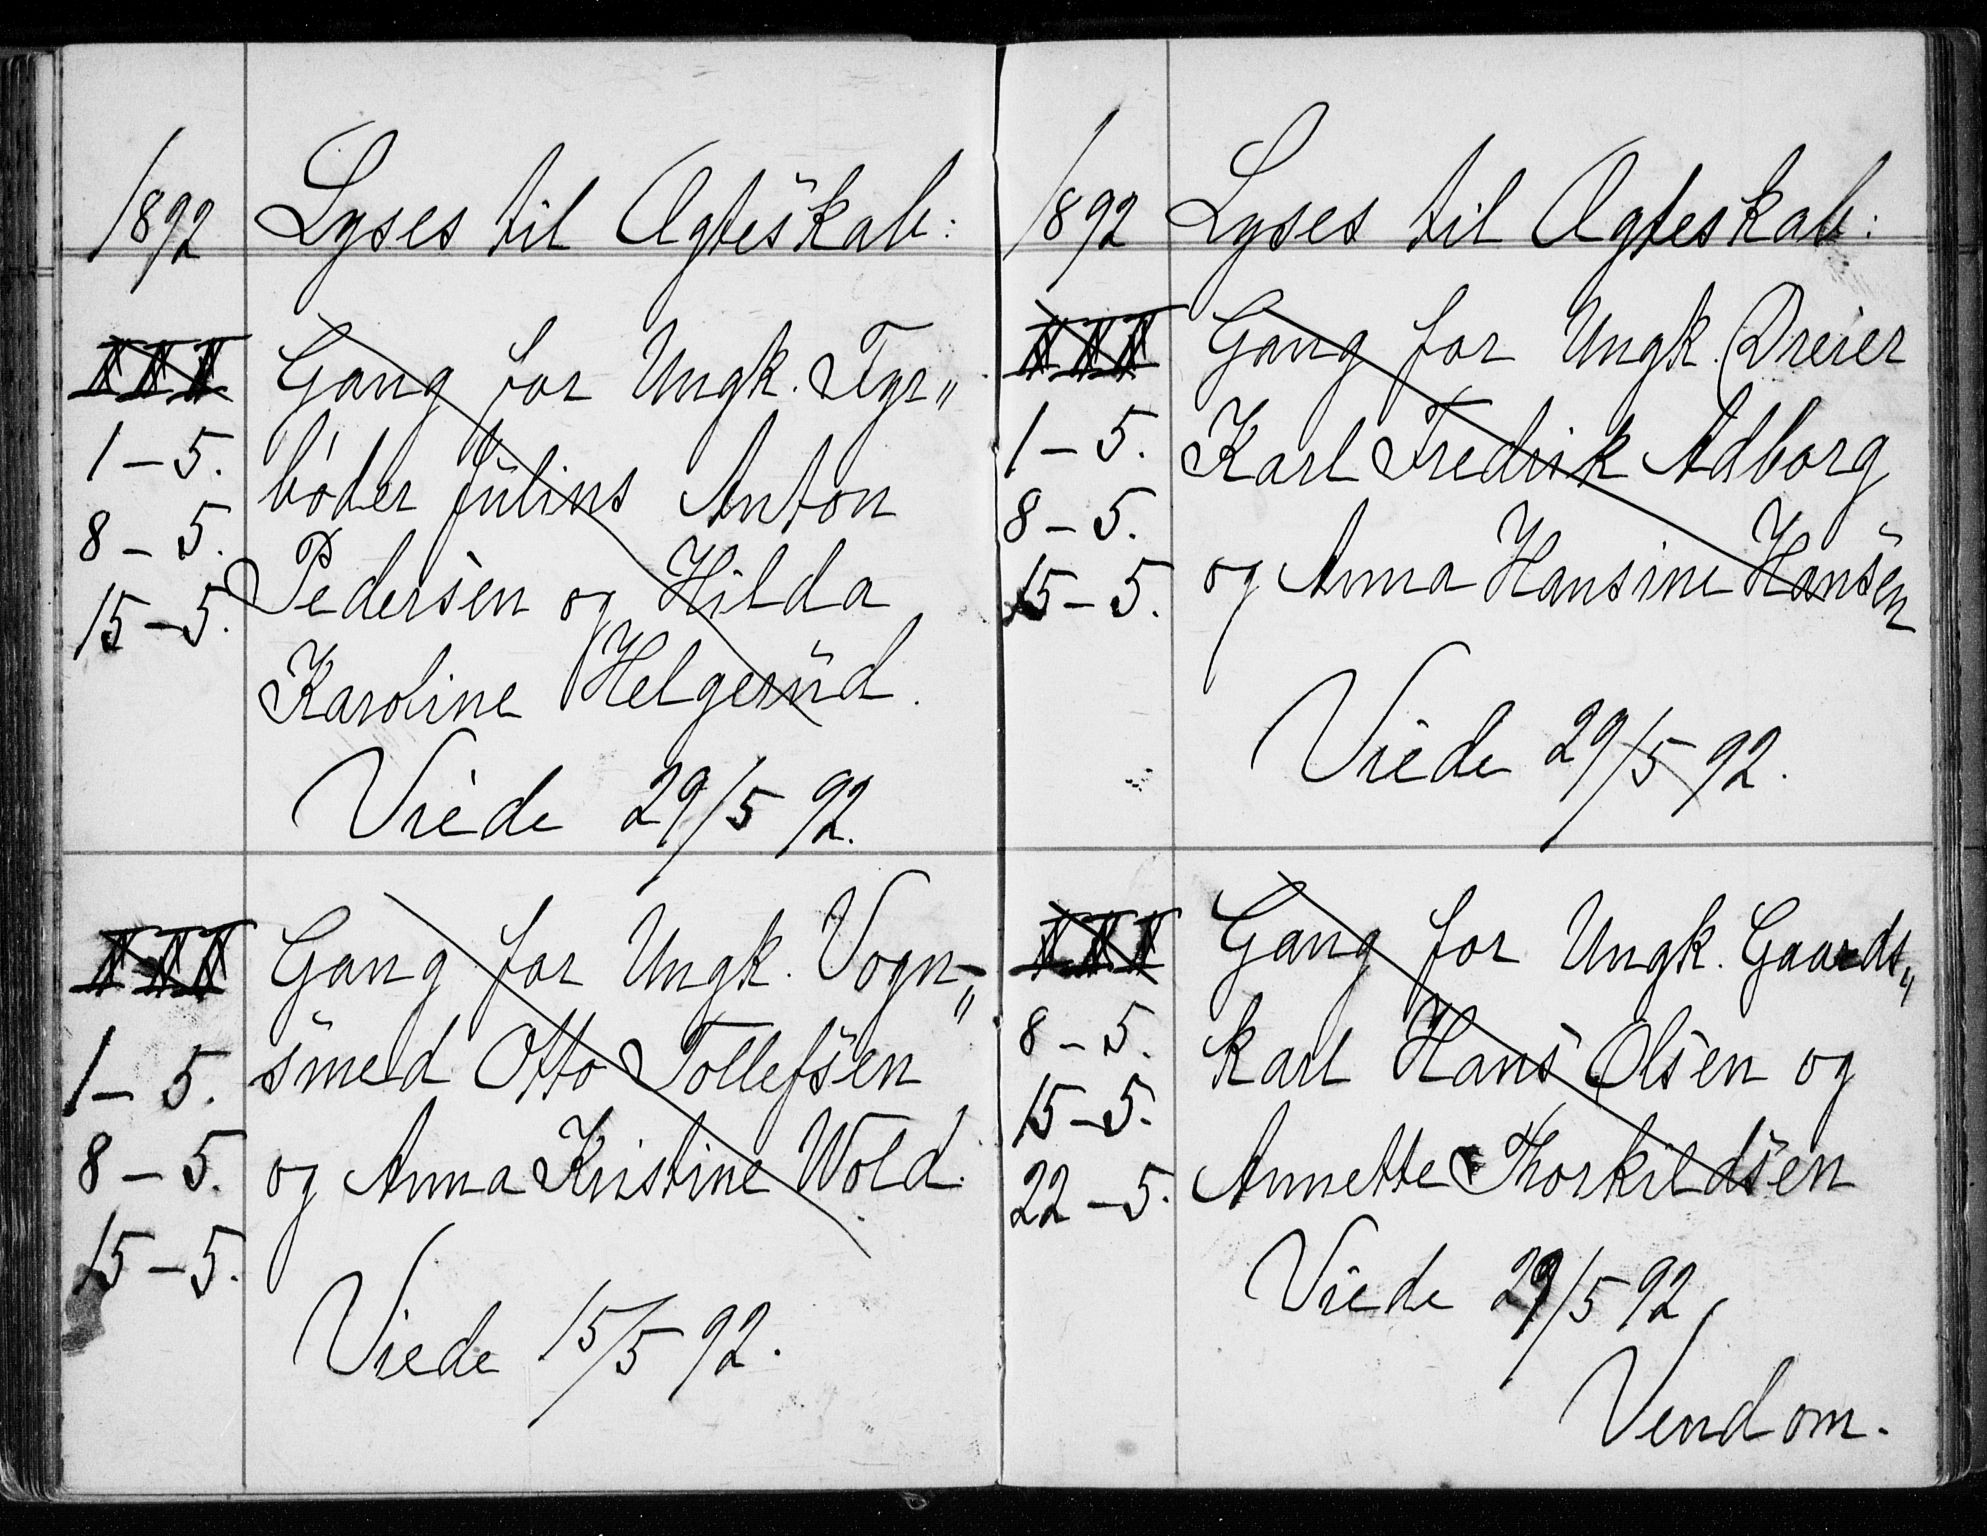 1892 Lyses til Ægteskab:
III Gang for Ungk. Fyr„
1 – 5. bøder Julius Anton
8 – 5. Pedersen og Hilda
15 – 5. Karoline Helgerud.
Viede 29/5 92.
III Gang for Ungk. Vogn„
1 – 5. smed Otto Tollefsen
8 – 5. og Anna Kristine Wold.
15 – 5.
Viede 15/5 92.
1892 Lyses til Ægteskab:
III Gang for Ungk. Dreier
1 – 5. Karl Fredrik Adborg
8 – 5. og Anna Hansine Hansen
15 – 5.
Viede 29/5 92.
III Gang for Ungk. Gaards„
8 – 5. karl Hans Olsen og
15 – 5. Annette Thorkildsen
22 – 5.
Viede 29/5 92
Vend om.